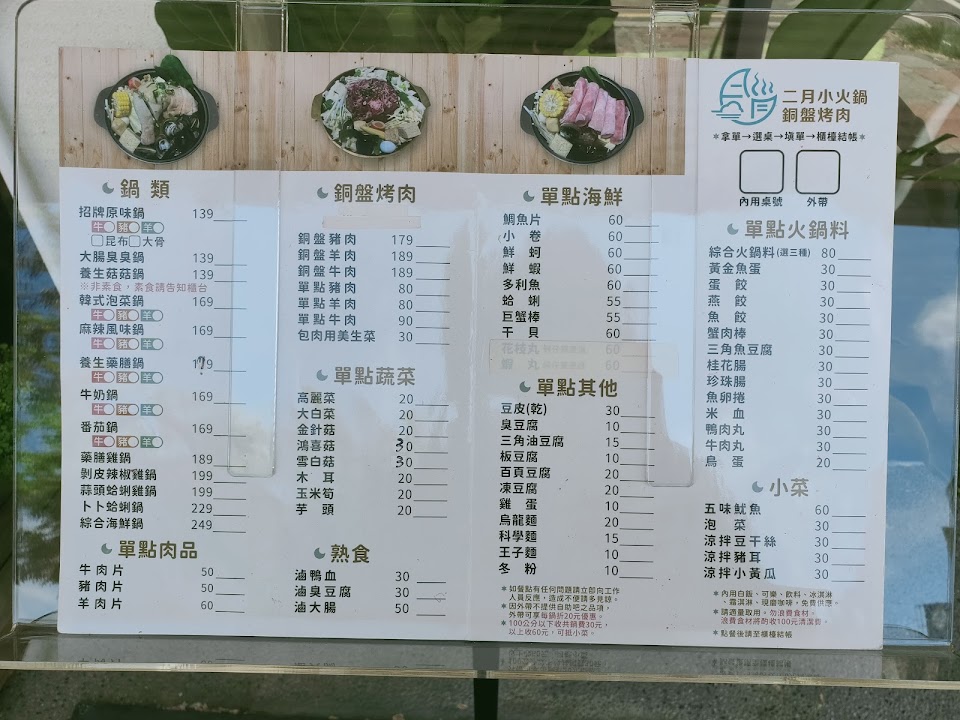 二月小火鍋
銅盤烤肉
*拿單→選桌→填單→櫃檯結帳*
內用桌號 外帶
鍋類
招牌原味鍋 139
牛 豬 羊
昆布 大骨
大腸臭臭鍋 139
養生菇菇鍋 139
※非素食,素食請告知櫃台
韓式泡菜鍋 169
牛 豬 羊
麻辣風味鍋 169
牛 豬 羊
養生藥膳鍋 179
牛 豬 羊
牛奶鍋 169
牛 豬 羊
番茄鍋 169
牛 豬 羊
藥膳雞鍋 189
剝皮辣椒雞鍋 199
蒜頭蛤蜊雞鍋 199
卜卜蛤蜊鍋 229
綜合海鮮鍋 249
單點肉品
牛肉片 50
豬肉片 50
羊肉片 60
銅盤烤肉
銅盤豬肉 179
銅盤羊肉 189
銅盤牛肉 189
單點豬肉 80
單點羊肉 80
單點牛肉 90
包肉用美生菜 30
單點蔬菜
高麗菜 20
大白菜 20
金針菇 20
鴻喜菇 30
雪白菇 30
木耳 20
玉米筍 20
芋頭 20
熟食
滷鴨血 30
滷臭豆腐 30
滷大腸 50
單點海鮮
鯛魚片 60
小卷 60
鮮蚵 60
鮮蝦 60
多利魚 60
蛤蜊 55
巨蟹棒 55
干貝 60
花枝丸 60
蝦丸 60
單點其他
豆皮(乾) 30
臭豆腐 10
三角油豆腐 15
板豆腐 10
百頁豆腐 20
凍豆腐 20
雞蛋 10
烏龍麵 20
科學麵 15
王子麵 10
冬粉 10
*如餐點有任何問題請立即向工作
人員反應,造成不便請多見諒。
*因外帶不提供自助吧之品項,
外帶可享每鍋折20元優惠。
*100公分以下收共鍋費30元,
以上收60元,可抵小菜。
單點火鍋料
綜合火鍋料(選三種) 80
黃金魚蛋 30
蛋餃 30
燕餃 30
魚餃 30
蟹肉棒 30
三角魚豆腐 30
桂花腸 30
珍珠腸 30
魚卵捲 30
米血 30
鴨肉丸 30
牛肉丸 30
鳥蛋 20
小菜
五味魷魚 60
泡菜 30
涼拌豆干絲 30
涼拌豬耳 30
涼拌小黃瓜 30
*內用白飯、可樂、飲料、冰淇淋
、霜淇淋、現磨咖啡,免費供應。
*請適量取用,勿浪費食材。
浪費食材將酌收100元清潔費。
*點餐後請至櫃檯結帳